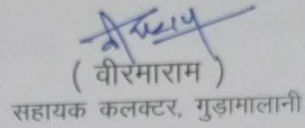 ( वीरमाराम )
सहायक कलक्टर, गुड़ामालानी